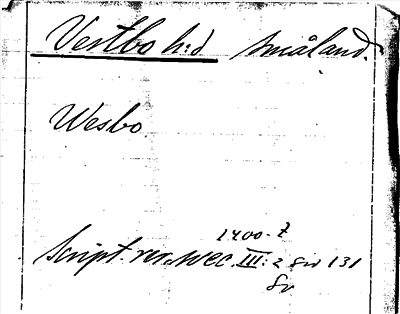 Vestbo h:d Småland.
Wesbo.
1400-t
Script. rer. svec. III: 2 sid 131
Sv